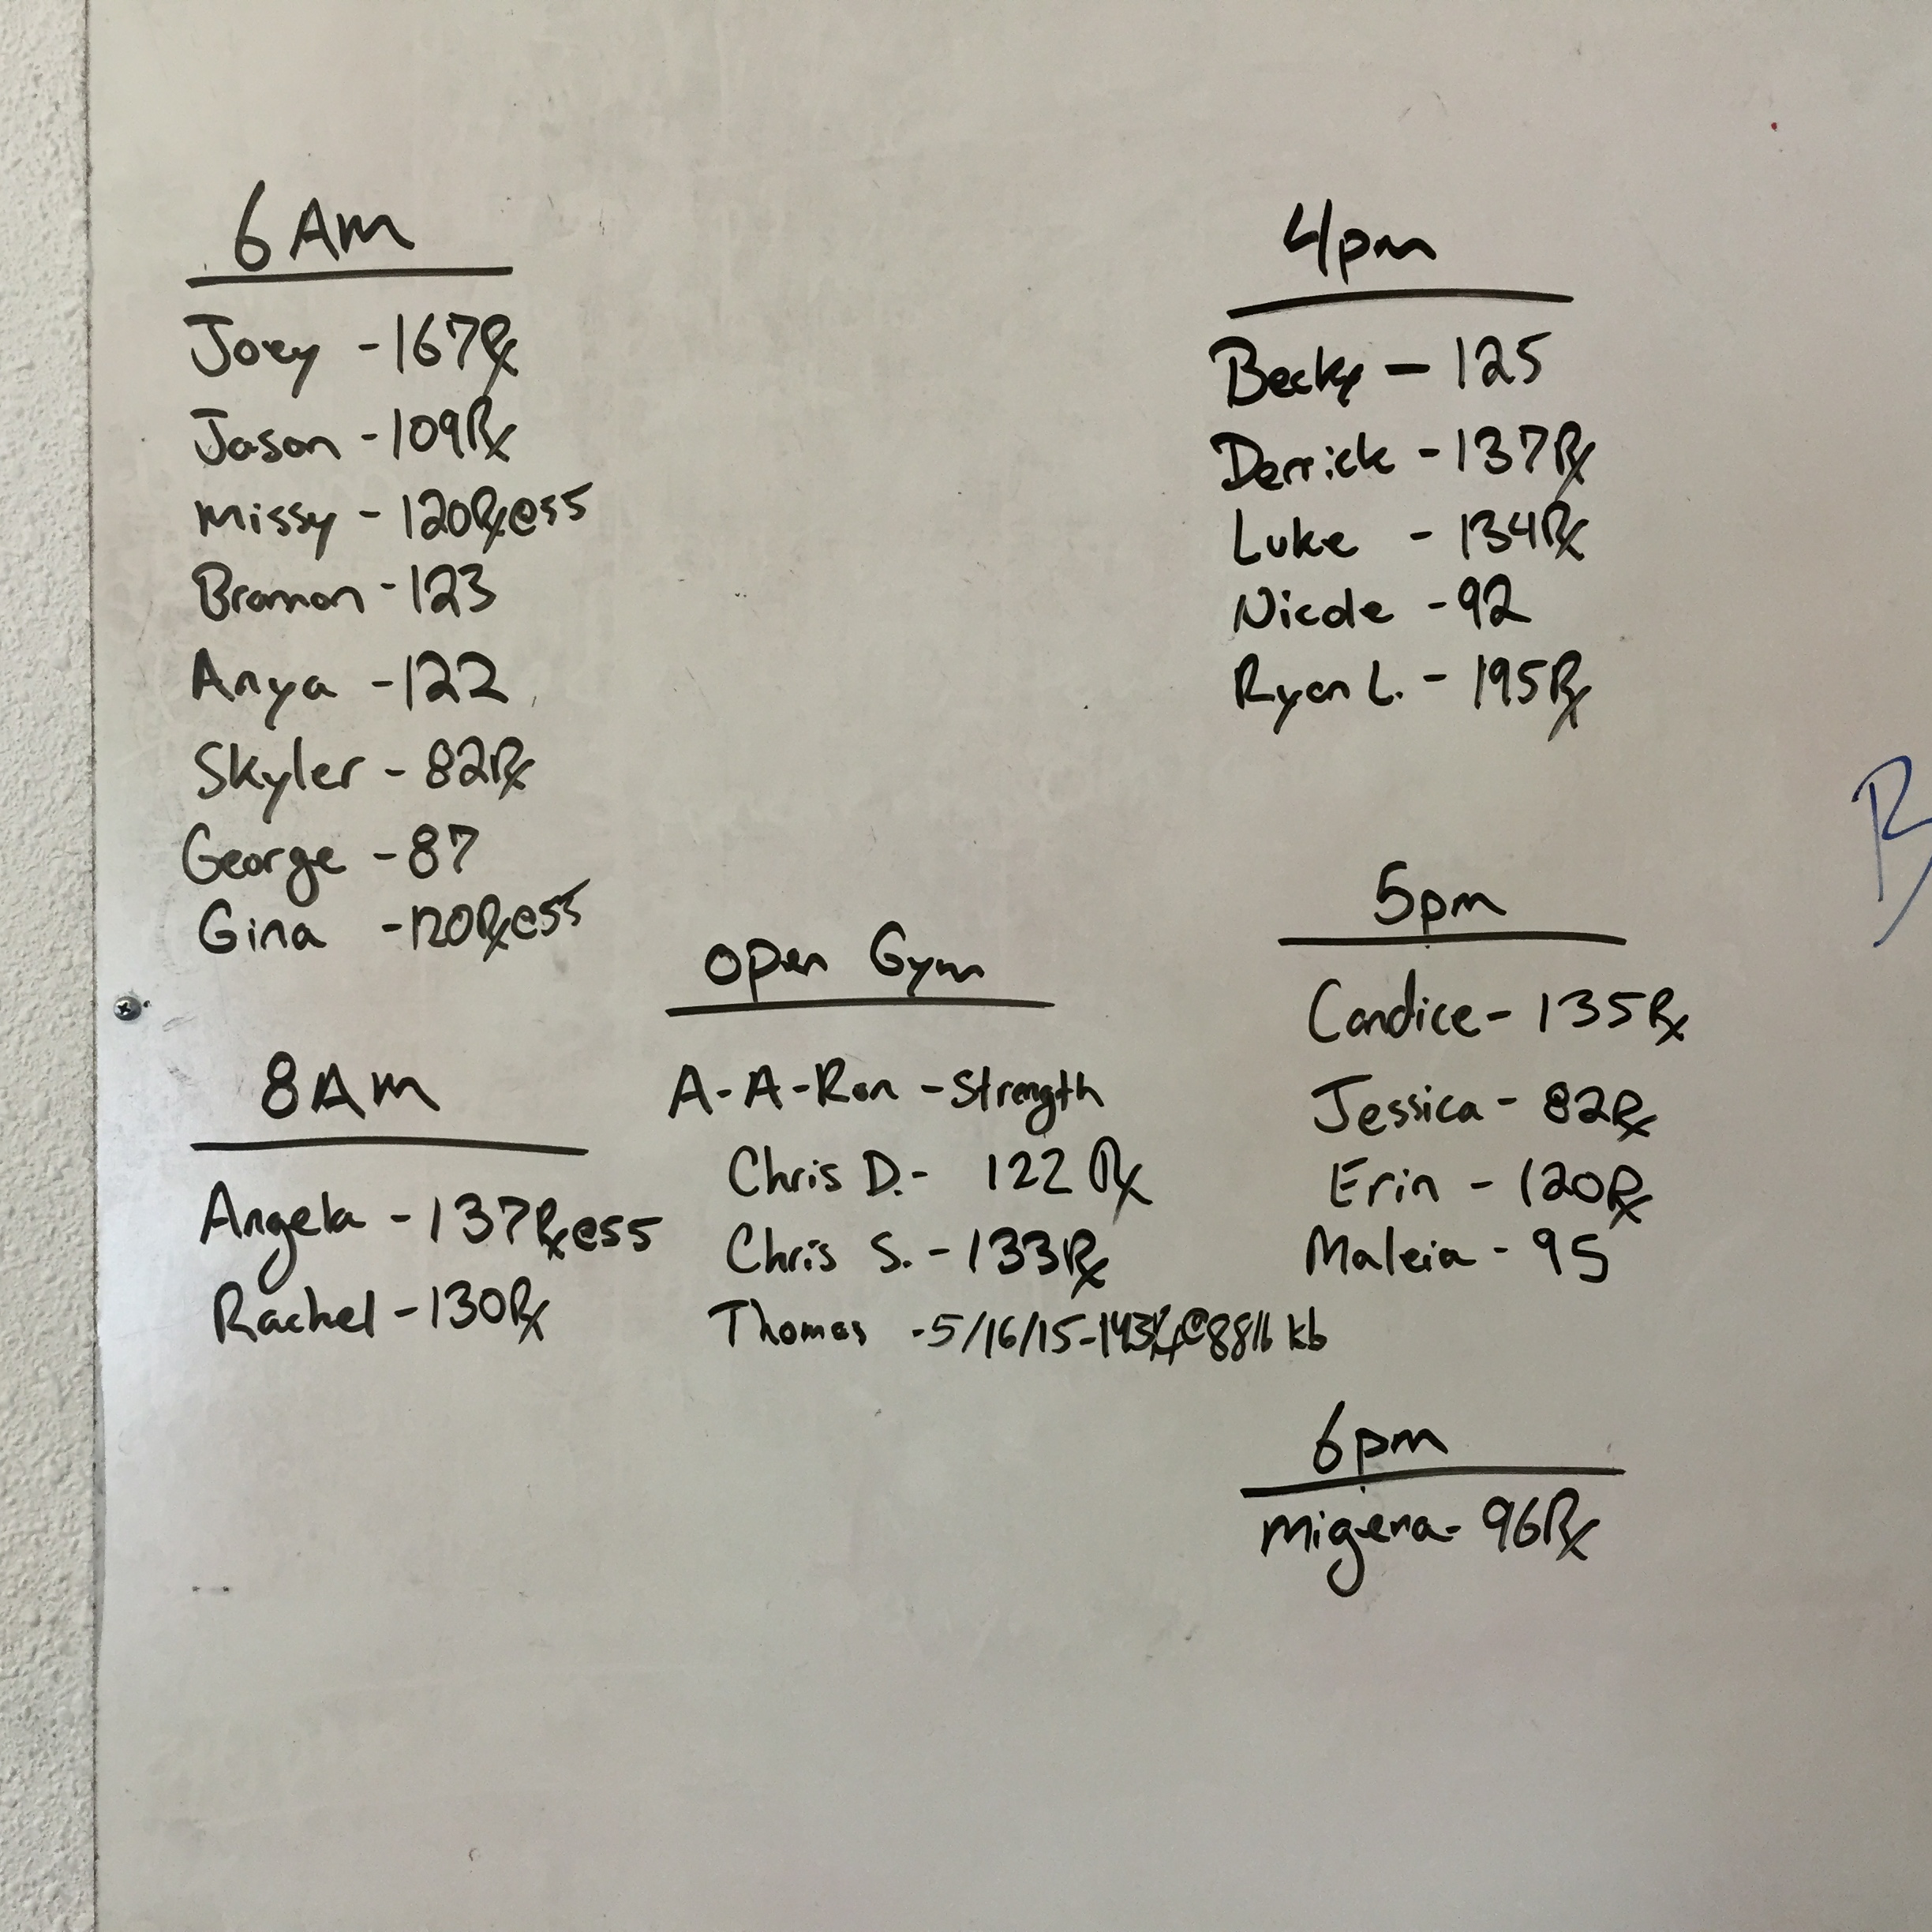 6 Am
Joey - 167 Rx
Jason - 109 Rx
Missy - 120 Rx @ 55
Bramon - 123
Anya - 122
Skyler - 82 Rx
George - 87
Gina - 120 Rx @ 55
8 Am
Angela - 137 Rx @ 55
Rachel - 130 Rx
open Gym
A-A-Ron - Strength
Chris D. - 122 Rx
Chris S. - 133 Rx
Thomas - 5/16/15 - 143 @ 88lb kb
4pm
Becky - 125
Derrick - 137 Rx
Luke - 134 Rx
Nicole - 92
Ryan L. - 195 Rx
5pm
Candice - 135 Rx
Jessica - 82 Rx
Erin - 120 Rx
Maleia - 95
6pm
Migena - 96 Rx